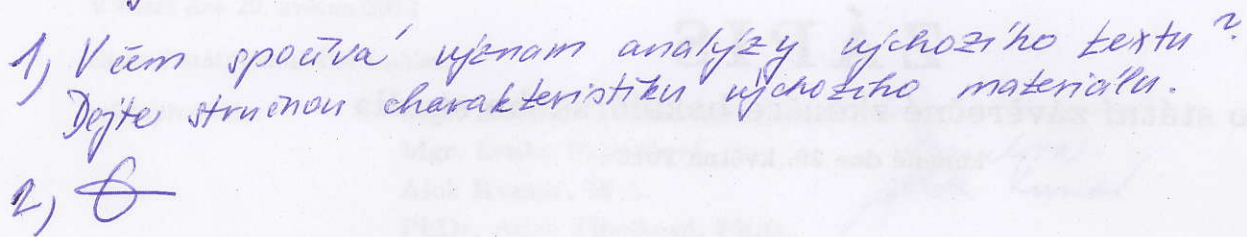 1) V čem spočívá význam analýzy výchozího textu?
Dejte stručnou charakteristiku výchozího materiálu.
2)